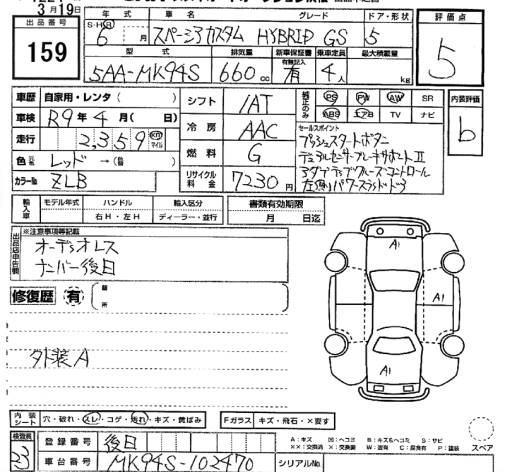 3月19日
出品番号
159
年式 車名 グレード ドア・形状
S・H・R 6 月 スペーシアカスタム HYBRID GS 5
型式 排気量 新車保証書 乗車定員 最大積載量
有無記入
5AA-MK94S 660cc 有 4人 kg
評価点
5
車歴 自家用・レンタ( ) シフト IAT
車検 R9年4月( 日) 冷房 AAC
走行 2,359 km マイル 燃料 G
色 レッド →( ) リサイクル料金 7230円
カラーNo ZLB
純正のみ PS PW AW SR
ABS エアB TV ナビ
内装評価
b
セールスポイント
プッシュスタートボタン
デュアルセンサーブレーキサポートⅡ
アダプティブクルーズコントロール
左右パワースライドドア
輸入車 モデル年式 ハンドル 輸入区分 書類有効期限
右H・左H ディーラー・並行 月 日迄
出品店申告欄 ※注意事項等記載
オーディオレス
ナンバー後日
修復歴 有 箇所
外装A
A1
A1
A1
内装シート 穴・破れ・スレ・コゲ・汚れ・キズ・黄ばみ Fガラス キズ・飛石・×要す
スペア
検査員 33
登録番号 後日
車台番号 MK94S-102470
シリアルNo
A:キズ 凹:ヘコミ B:キズ&ヘコミ S:サビ
××:交換済 ×:交換要 W:波有 C:腐食有 P:塗装